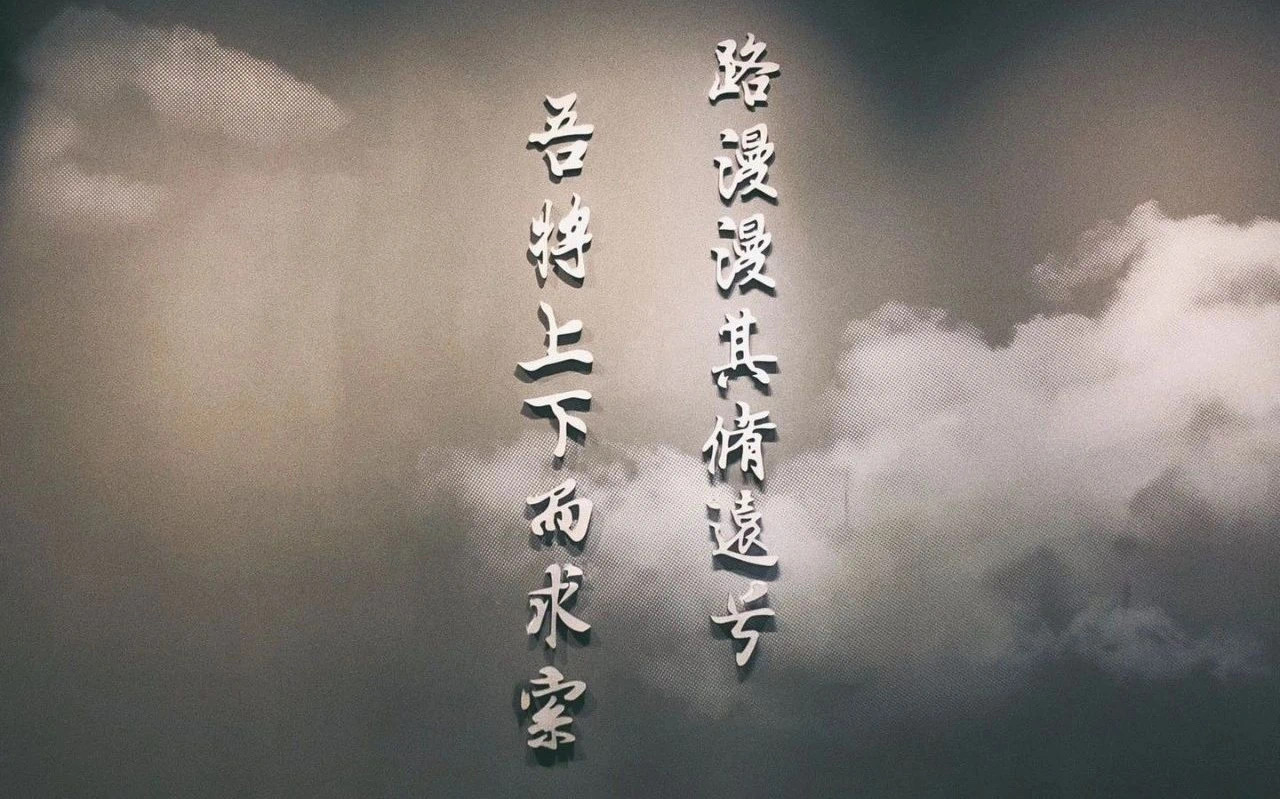 路漫漫其脩遠兮
吾将上下而求索